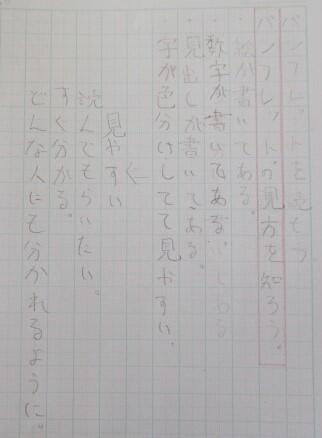 パンフレットを読もう
パンフレットの見方を知ろう。
・絵が書いてある。
・数字が書いてある
・見出しが書いてある。
・字が色分けしてて見やすい。
↓
見やすい
読んでもらいたい。
すぐ分かる。
どんな人にも分かれるように。